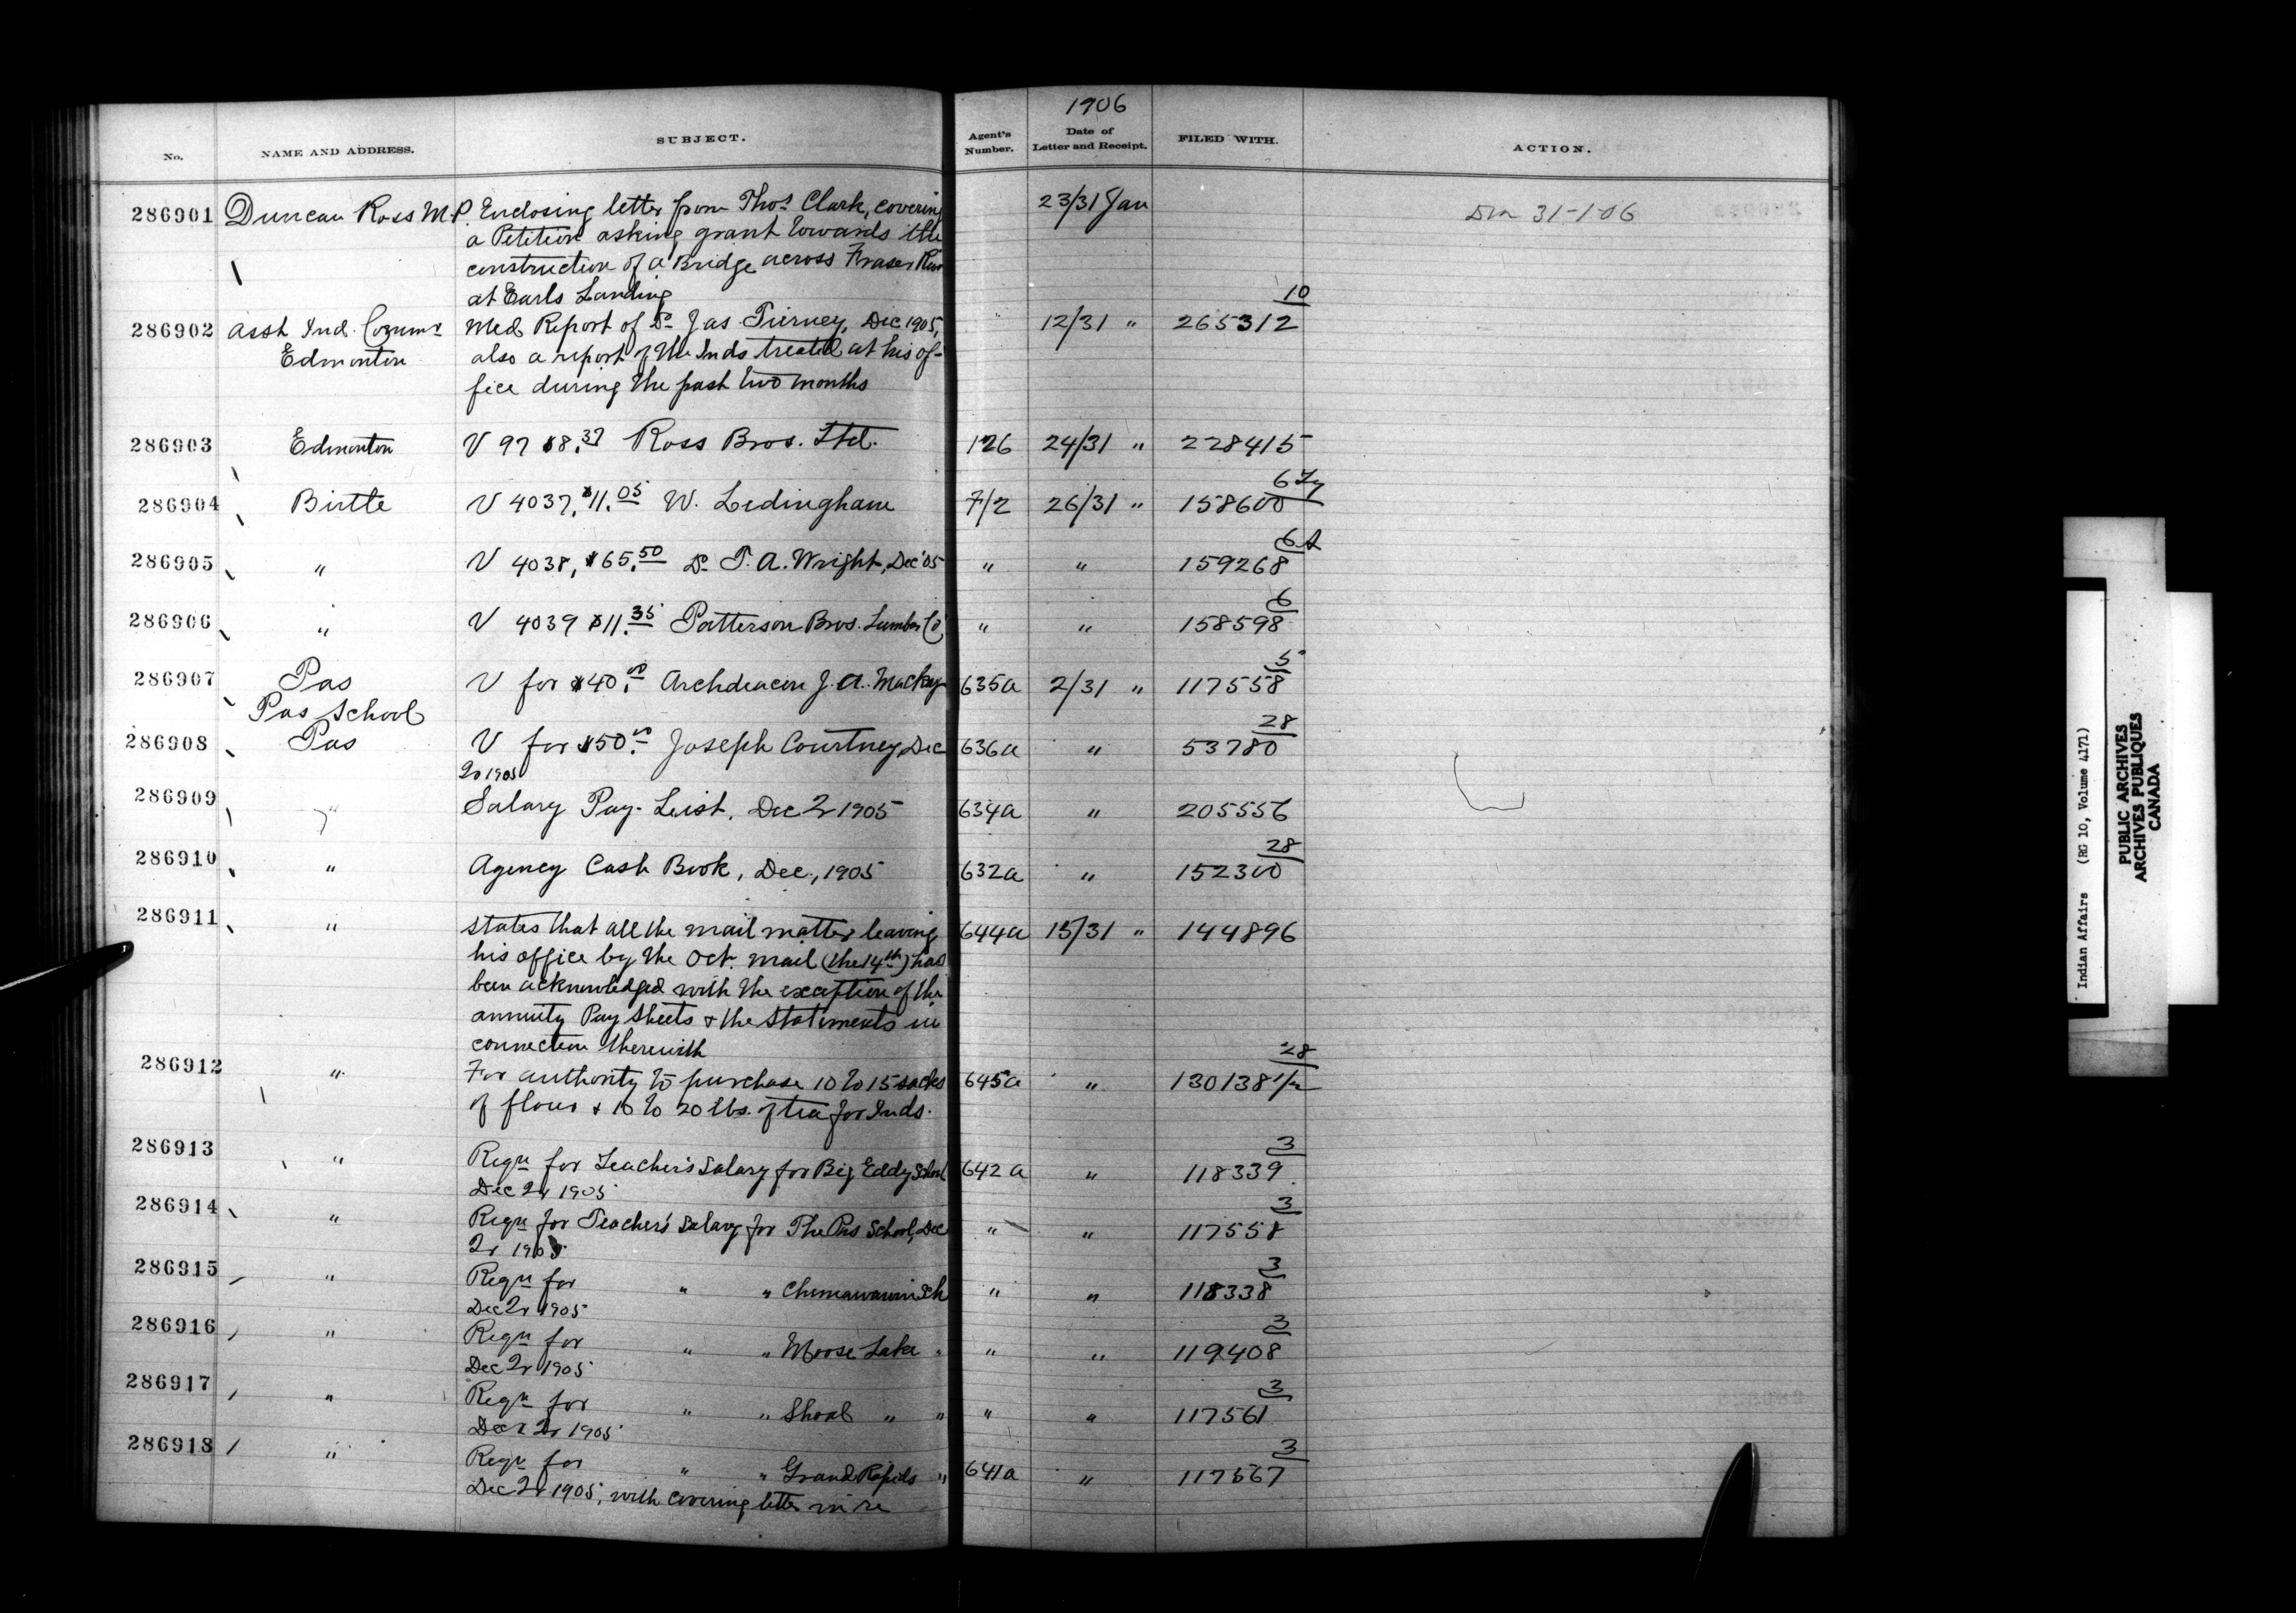 1906
No. NAME AND ADDRESS. SUBJECT. Agent's Number. Date of Letter and Receipt. FILED WITH. ACTION.
286901 Duncan Ross M.P. Enclosing letter from Thos. Clark, covering 23/31 Jan 31-1-06
a Petition asking grant towards the
construction of a Bridge across Fraser River
at Earls Landing
10
286902 Asst Ind. Commr Med Report of Dr Jas. Tierney, Dec 1905, 12/31 " 265312
Edmonton also a report of the Inds treated at his of-
fice during the past two months
286903 Edmonton V 97 $8.37 Ross Bros. Ltd. 126 24/31 " 228415
6
286904 Birtle V 4037, $11.05 W. Ledingham 7/2 26/31 " 158600
6
286905 " V 4038, $65.50 Dr T. A. Wright, Dec '05 " " 159268
6
286906 " V 4039 $11.35 Patterson Bros. Lumber Co " " 158598
5
286907 Pas V for $40.00 Archdeacon J. A. Mackay 635a 2/31 " 117558
Pas School
28
286908 Pas V for $50.00 Joseph Courtney, Dec 636a " 53780
Qr 1905
286909 " Salary Pay-List, Dec Qr 1905 634a " 205556
28
286910 " Agency Cash Book, Dec., 1905 632a " 152300
286911 " States that all the mail matter leaving 644a 15/31 " 144896
his office by the Oct. mail (the 14th) has
been acknowledged with the exception of the
annuity Pay Sheets & the statements in
connection therewith
28
286912 " For authority to purchase 10 to 15 sacks 645a " 130138 1/2
of flour & 10 to 20 lbs. of tea for Inds.
3
286913 " Reqn for Teacher's Salary for Big Eddy School 642a " 118339
Dec Qr 1905
3
286914 " Reqn for Teacher's Salary for The Pas School, Dec " " 117558
Qr 1905
3
286915 " Reqn for " " Chemawawin Sch " " 118338
Dec Qr 1905
3
286916 " Reqn for " " Moose Lake " " " 119408
Dec Qr 1905
3
286917 " Reqn for " " Shoal " " " " 117561
Dec Qr 1905
3
286918 " Reqn for " " Grand Rapids " 641a " 117567
Dec Qr 1905, with covering letter in re
Indian Affairs (RG 10, Volume 4171)
PUBLIC ARCHIVES
ARCHIVES PUBLIQUES
CANADA